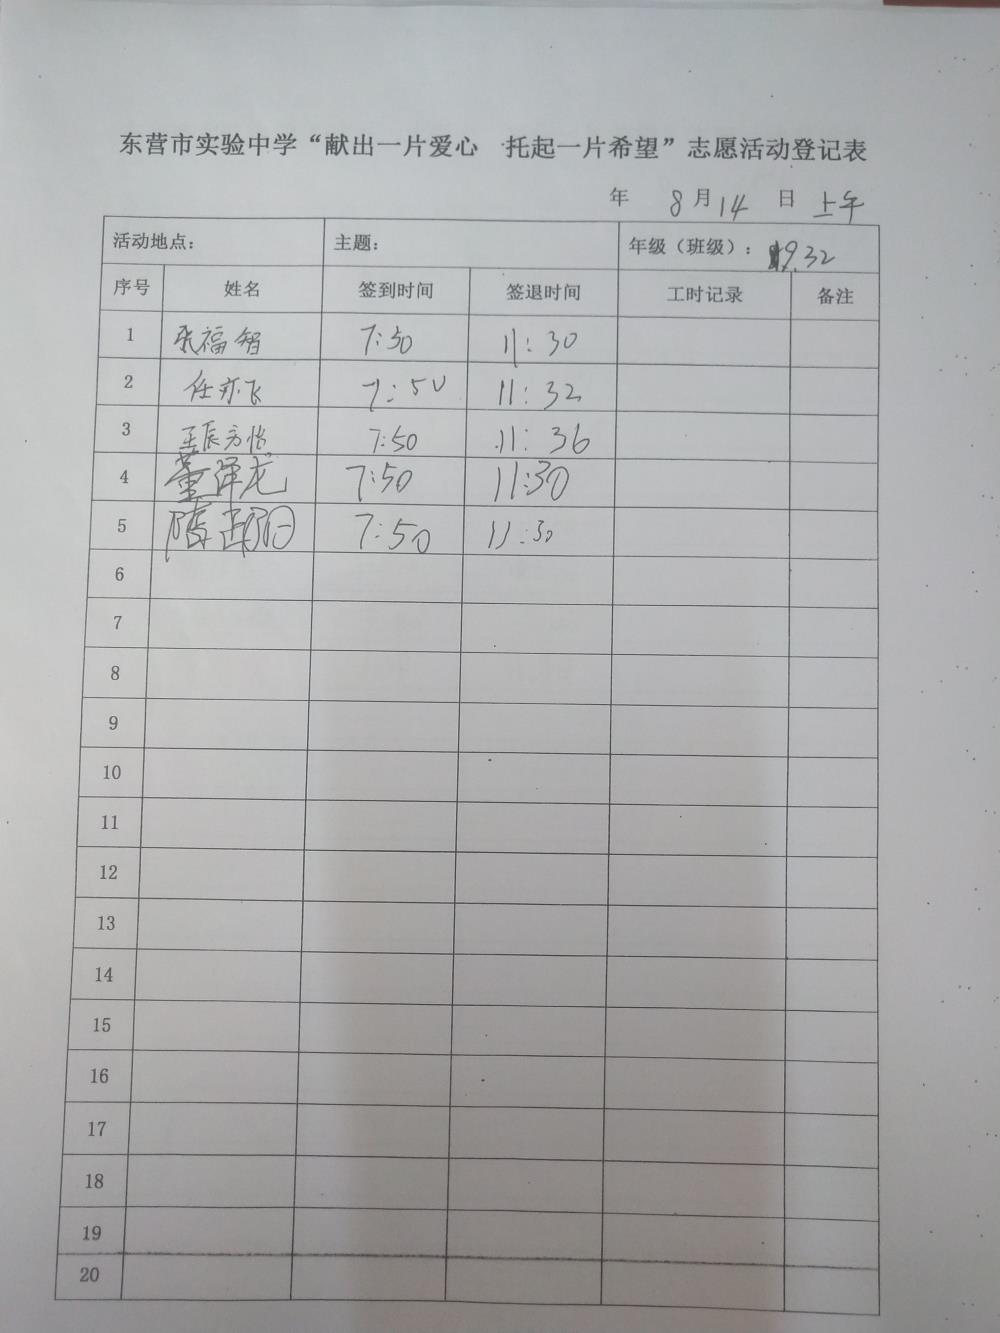 东营市实验中学“献出一片爱心 托起一片希望”志愿活动登记表
年 8月14 日 上午
活动地点： 主题： 年级（班级）： 19.32
序号 姓名 签到时间 签退时间 工时记录 备注
1 张福智 7:50 11:30
2 任亦飞 7:50 11:32
3 王辰方怡 7:50 11:36
4 董泽龙 7:50 11:30
5 7:50 11:30
6
7
8
9
10
11
12
13
14
15
16
17
18
19
20